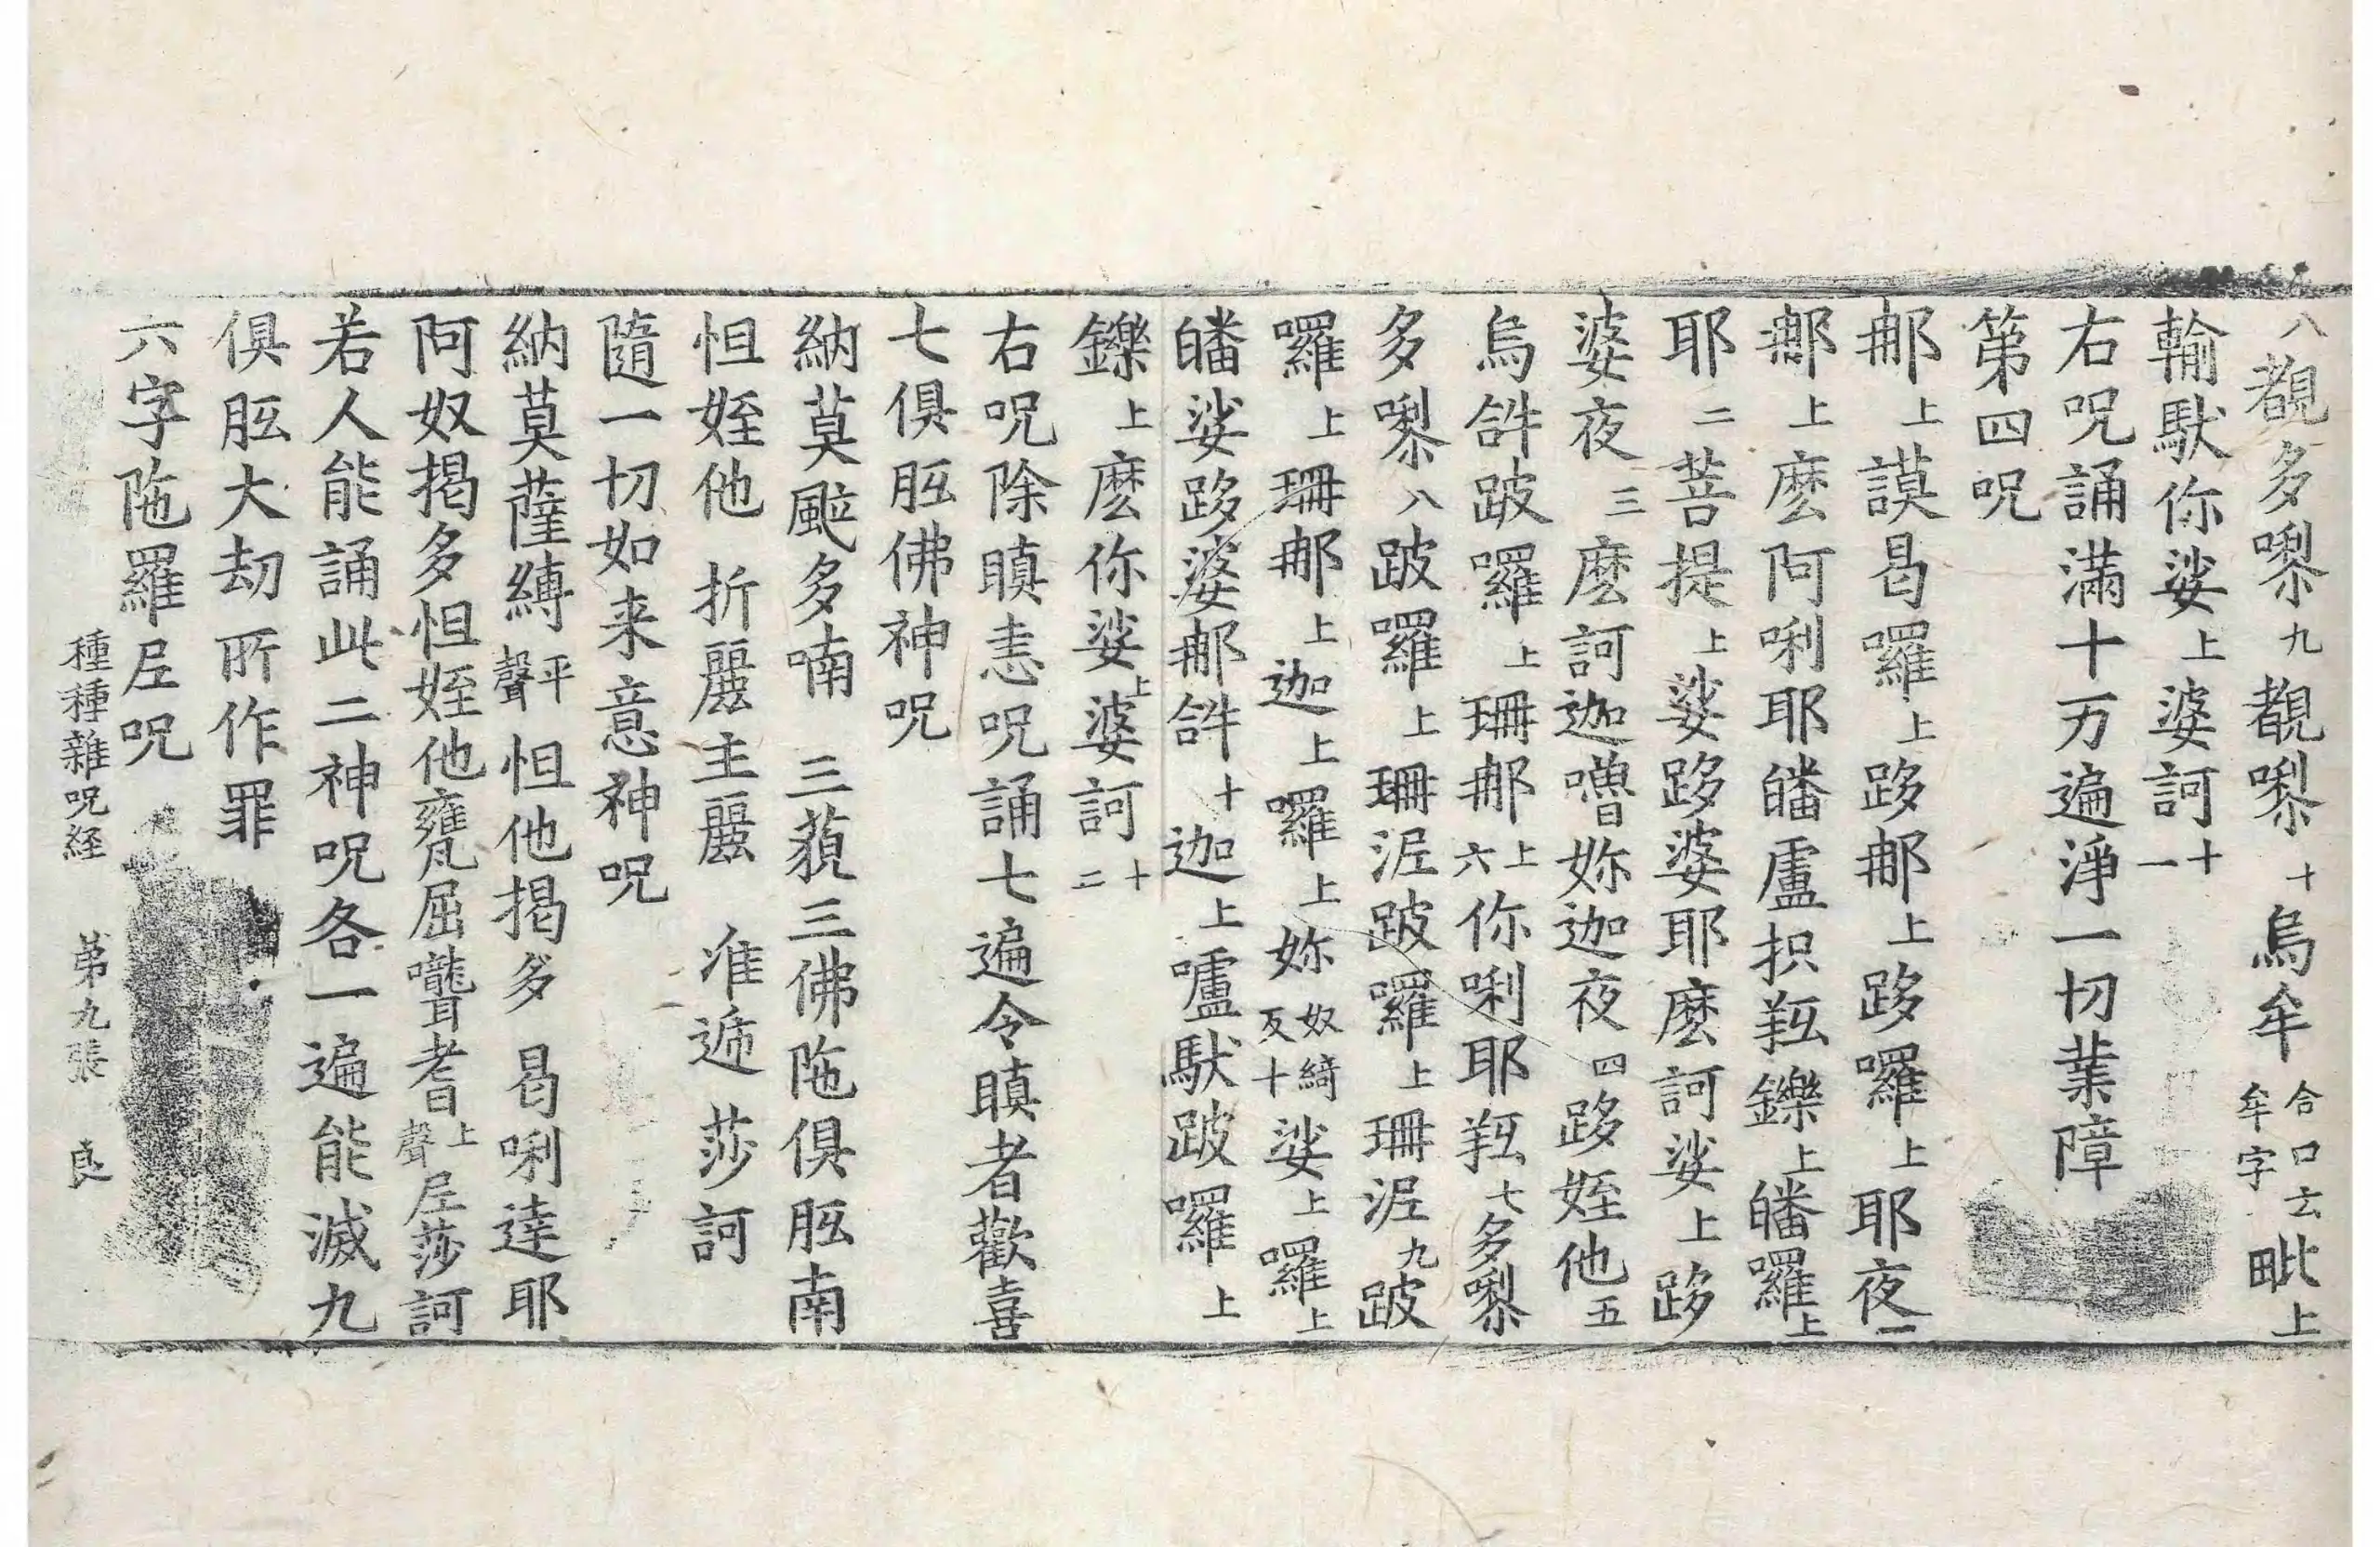 八覩多嚟九覩嚟十烏牟合口云牟字毗上
輸馱你娑上婆訶十一
右呪誦滿十万遍淨一切業障
第四呪
那上謨曷囉上跢那上跢囉上耶夜一
那上麽阿唎耶皤盧枳羝鑠上皤囉上
耶二菩提上娑跢婆耶麽訶娑上跢
婆夜三麽訶迦嚕妳迦夜四跢姪他五
烏𤙖跛囉上珊那上六你唎耶羝七多嚟
多嚟八跛囉上珊泥跛囉上珊泥九跛
囉上珊那上迦上囉上妳奴綺反十娑上囉上
皤娑跢婆那𤙖十迦上嚧馱跛囉上
鑠上麽你娑上婆訶十二
右呪除瞋恚呪誦七遍令瞋者歡喜
七俱胝佛神呪
納莫颯多喃 三藐三佛陁俱胝南
怛姪他 折麗主麗 准遞 莎訶
隨一切如来意神呪
納莫薩縛平聲怛他揭多 曷唎達耶
阿奴揭多怛姪他𤮨屈𠿒耆上聲𡰱莎訶
若人能誦此二神呪各一遍能滅九
俱胝大劫所作罪
六字陁羅𡰱呪
種種雜呪経 第九張 良